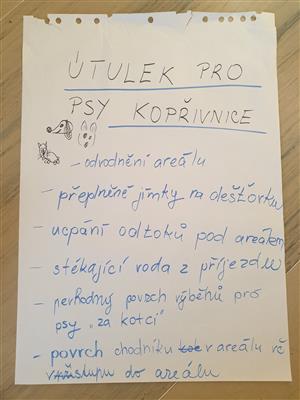 ÚTULEK PRO
PSY KOPŘIVNICE
- odvodnění areálu
- přeplněné jímky na dešťovku
- ucpání odtoků pod areálem
- stékající voda z příjezdu
- nevhodný povrch výběhů pro
psy "za kotci"
- povrch chodníku v areálu vč
vstupu do areálu